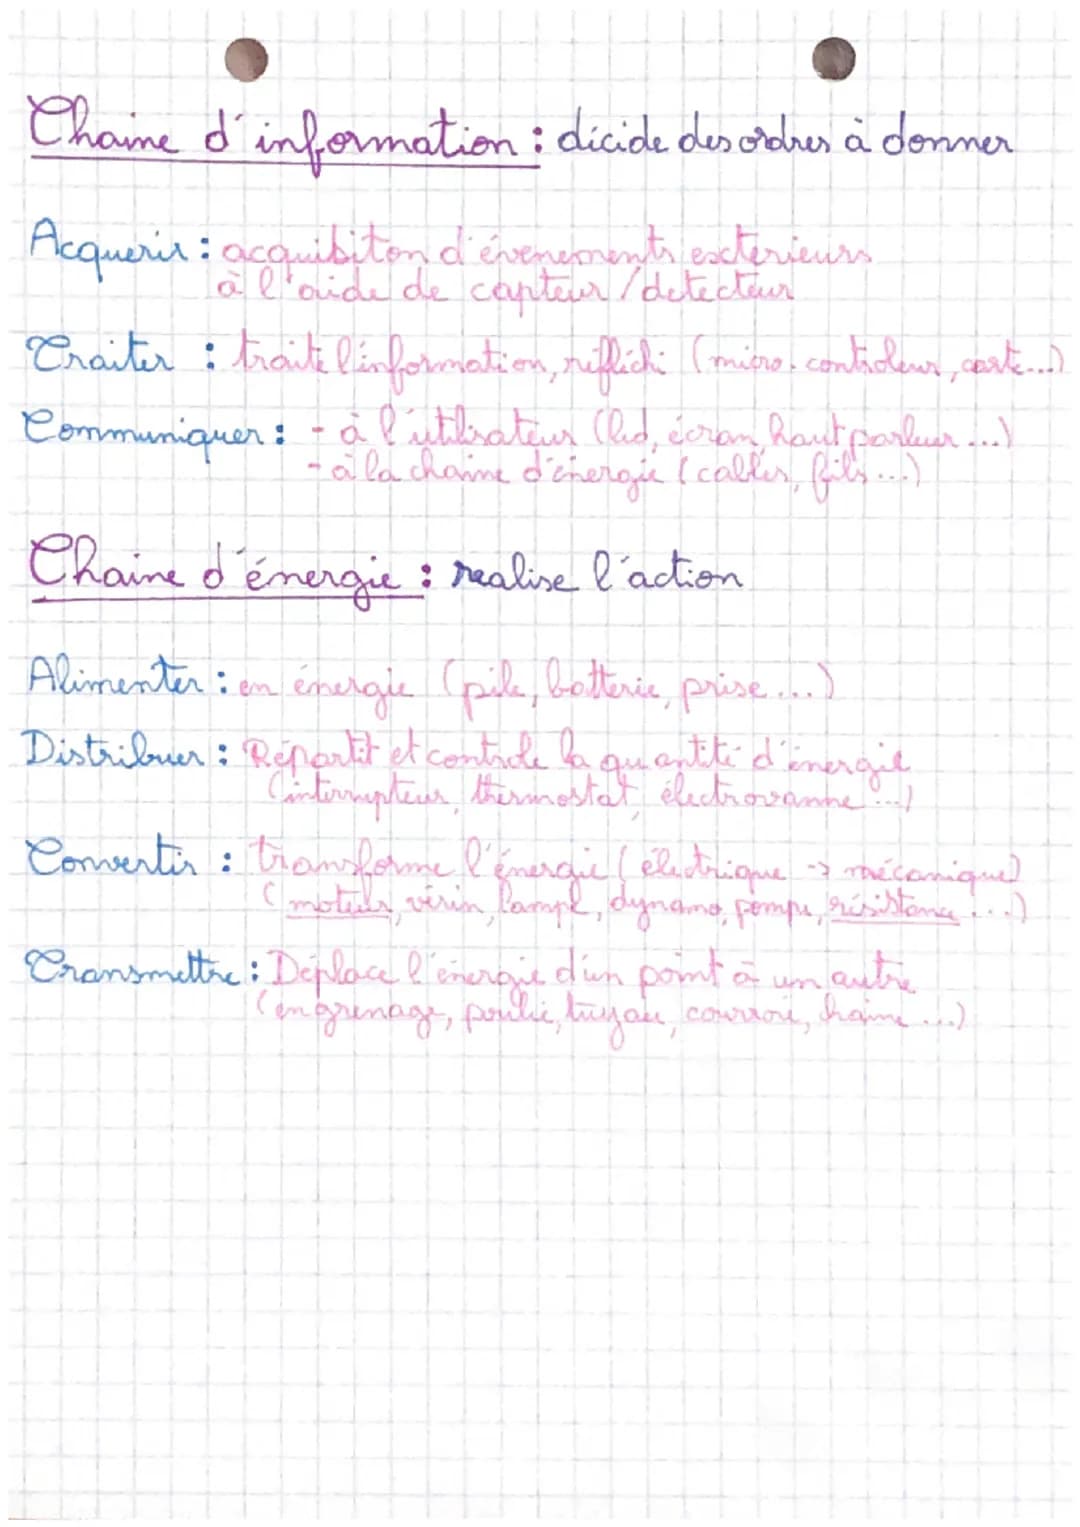 Chaine d'information : décide des ordres à donner
Acquerir : acquibiton d'évenements exterieurs
à l'aide de capteur / detecteur
Traiter : traite l'information, réfléchi (micro-controleur, carte...)
Communiquer : - à l'utilisateur (led, écran, haut parleur ...)
- à la chaine d'énergie (cables, fils ...)
Chaine d'énergie : realise l'action
Alimenter : en énergie (pile, batterie, prise ...)
Distribuer : Répartit et controle la quantité d'énergie
(interrupteur, thermostat, électrovanne ...)
Convertir : transforme l'énergie (électrique -> mécanique)
(moteur, vérin, lampe, dynamo, pompe, résistance ...)
Transmettre : Déplace l'énergie d'un point à un autre
(engrenage, poulie, tuyau, courroie, chaine ...)